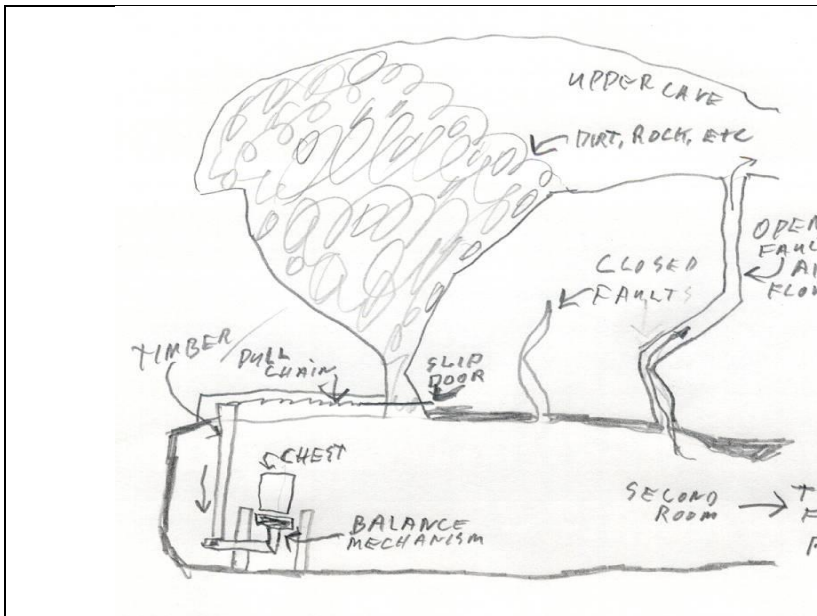 UPPER CAVE
DIRT, ROCK, ETC
OPEN
CLOSED
FAULTS
TIMBER
PULL
CHAIN
SLIP
DOOR
CHEST
BALANCE
MECHANISM
SECOND
ROOM